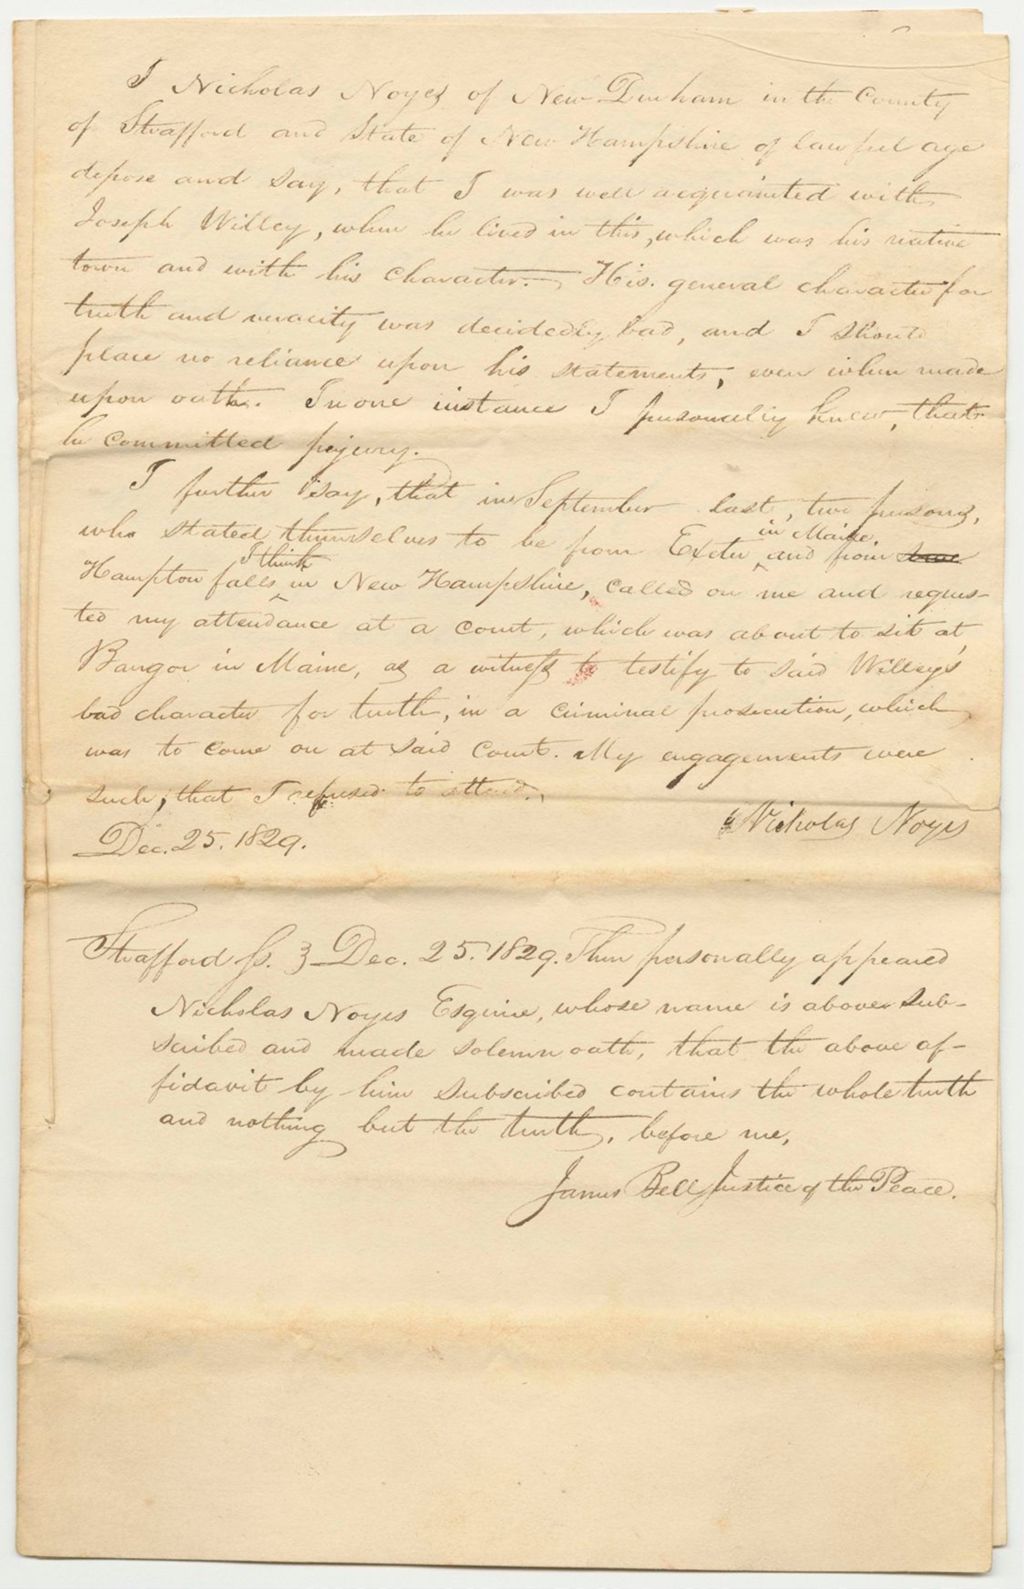 I Nicholas Noyes of New-Durham in the County
of Strafford and State of New Hampshire of lawful age
depose and say, that I was well acquainted with
Joseph Willey, when he lived in this, which was his native
town and with his character. His general character for
truth and veracity was decidedly bad, and I should
place no reliance upon his statements, even when made
upon oath. In one instance I personally knew, that
he committed perjury.
I further say, that in September last, two persons,
who stated themselves to be from Exeter in Maine, and from
Hampton falls I think in New Hampshire, called on me and reques-
ted my attendance at a court, which was about to sit at
Bangor in Maine, as a witness to testify to said Willey's
bad character for truth, in a criminal prosecution, which
was to come on at said Court. My engagements were
such, that I refused to attend.
Nicholas Noyes
Dec. 25. 1829.
Strafford ss. } Dec. 25. 1829. Then personally appeared
Nicholas Noyes Esquire, whose name is above sub-
scribed and made solemn oath, that the above af-
fidavit by him subscribed contains the whole truth
and nothing but the truth, before me,
James Bell Justice of the Peace.